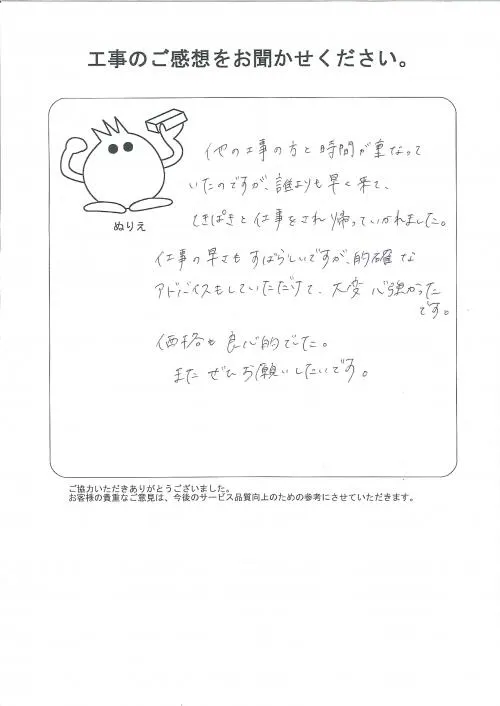 工事のご感想をお聞かせください。
他の工事の方と時間が重なって
いたのですが、誰よりも早く来て、
てきぱきと仕事をされ帰っていかれました。
仕事の早さもすばらしいですが、的確な
アドバイスもしていただけて、大変心強かった
です。
価格も良心的でした。
またぜひお願いしたいです。
ぬりえ
ご協力いただきありがとうございました。
お客様の貴重なご意見は、今後のサービス品質向上のための参考にさせていただきます。